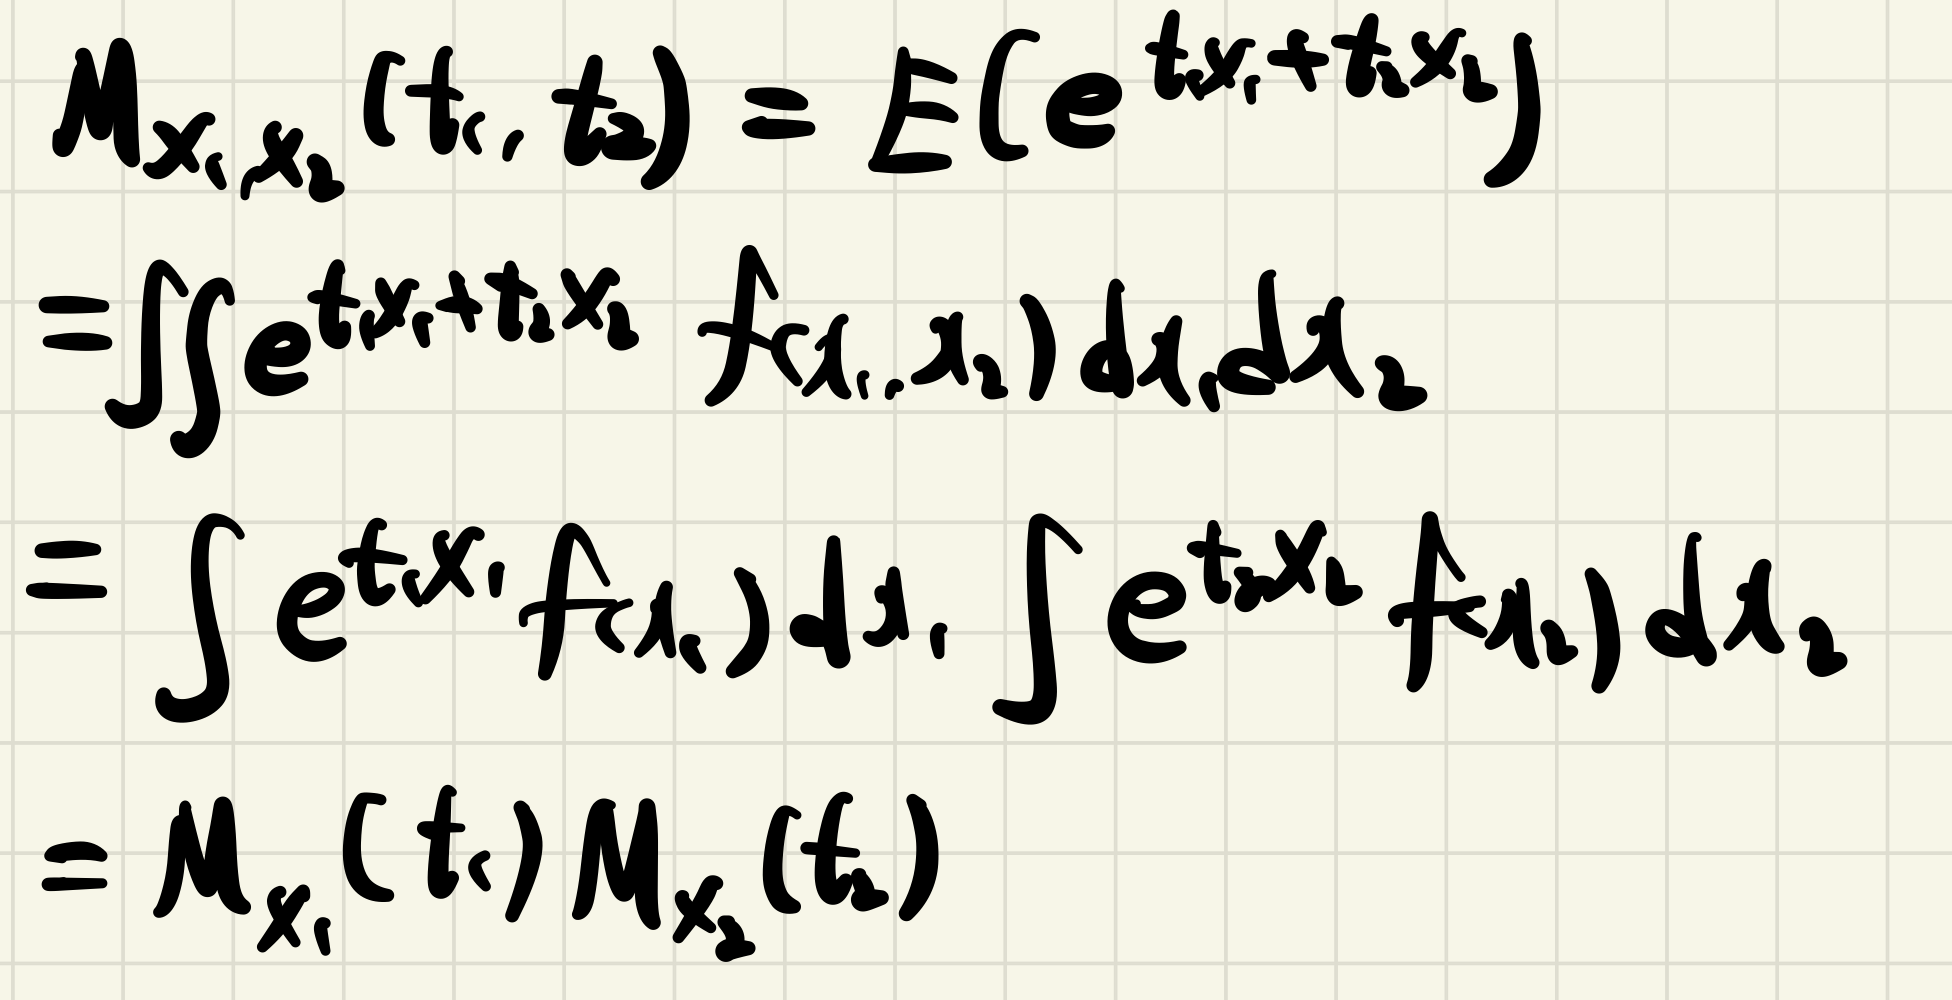 M_{X_1,X_2}(t_1, t_2) = E(e^{t_1X_1+t_2X_2})
=∫∫e^{t_1X_1+t_2X_2} f(x_1,x_2)dx_1dx_2
= ∫e^{t_1X_1}f(x_1)dx_1 ∫e^{t_2X_2}f(x_2)dx_2
= M_{X_1}(t_1)M_{X_2}(t_2)